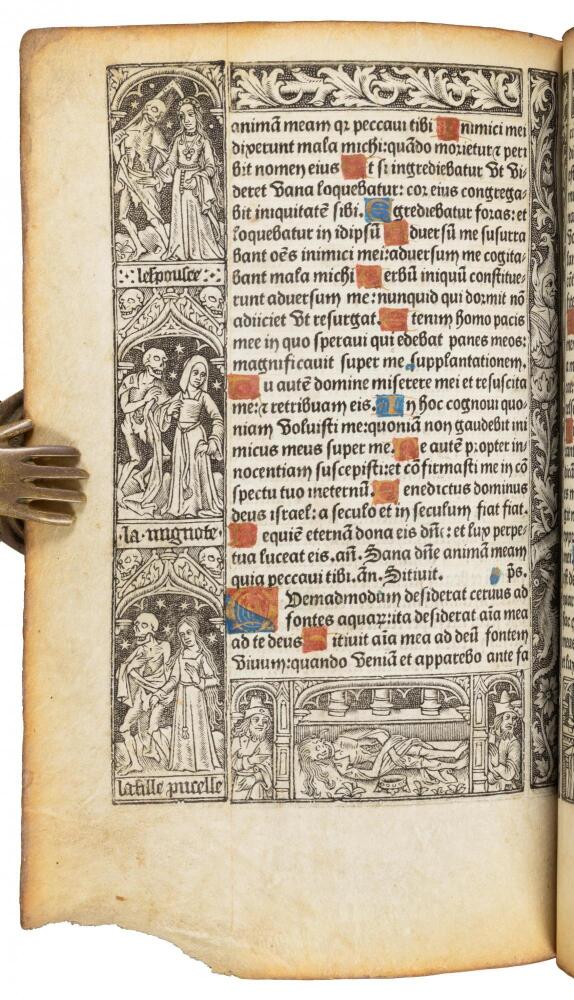 animā meam qr peccaui tibi Inimici mei
dixerunt mala michi: quādo morietur ⁊ peri
bit nomen eius Et si ingrediebatur vt vi-
deret vana loquebatur: cor eius congrega-
bit iniquitatē sibi. Egrediebatur foras: et
loquebatur in idipsū Aduersū me susurra
bant oēs inimici mei: aduersum me cogita-
bant mala michi Verbū iniquū constitue-
runt aduersum me: nunquid qui dormit nō
adiiciet vt resurgat. Etenim homo pacis
mee in quo speraui qui edebat panes meos:
magnificauit super me supplantationem.
Tu autē domine miserere mei et resuscita
me: ⁊ retribuam eis. In hoc cognoui quo-
niam voluisti me: quoniā non gaudebit ini
micus meus super me. Me autē propter in-
nocentiam suscepisti: et cōfirmasti me in cō
spectu tuo ineternū. Benedictus dominus
deus israel: a seculo et in seculum fiat fiat.
Requiē eternā dona eis dn̄e: et lux perpe-
tua luceat eis. an̄. Sana dn̄e animā meam
quia peccaui tibi. an̄. Sitiuit. ps̄.
Quemadmodum desiderat ceruus ad
fontes aquaꝝ: ita desiderat aīa mea
ad te deus Sitiuit aīa mea ad deū fontem
viuum: quando veniā et apparebo ante fa
lespousee
la mignote
la fille pucelle